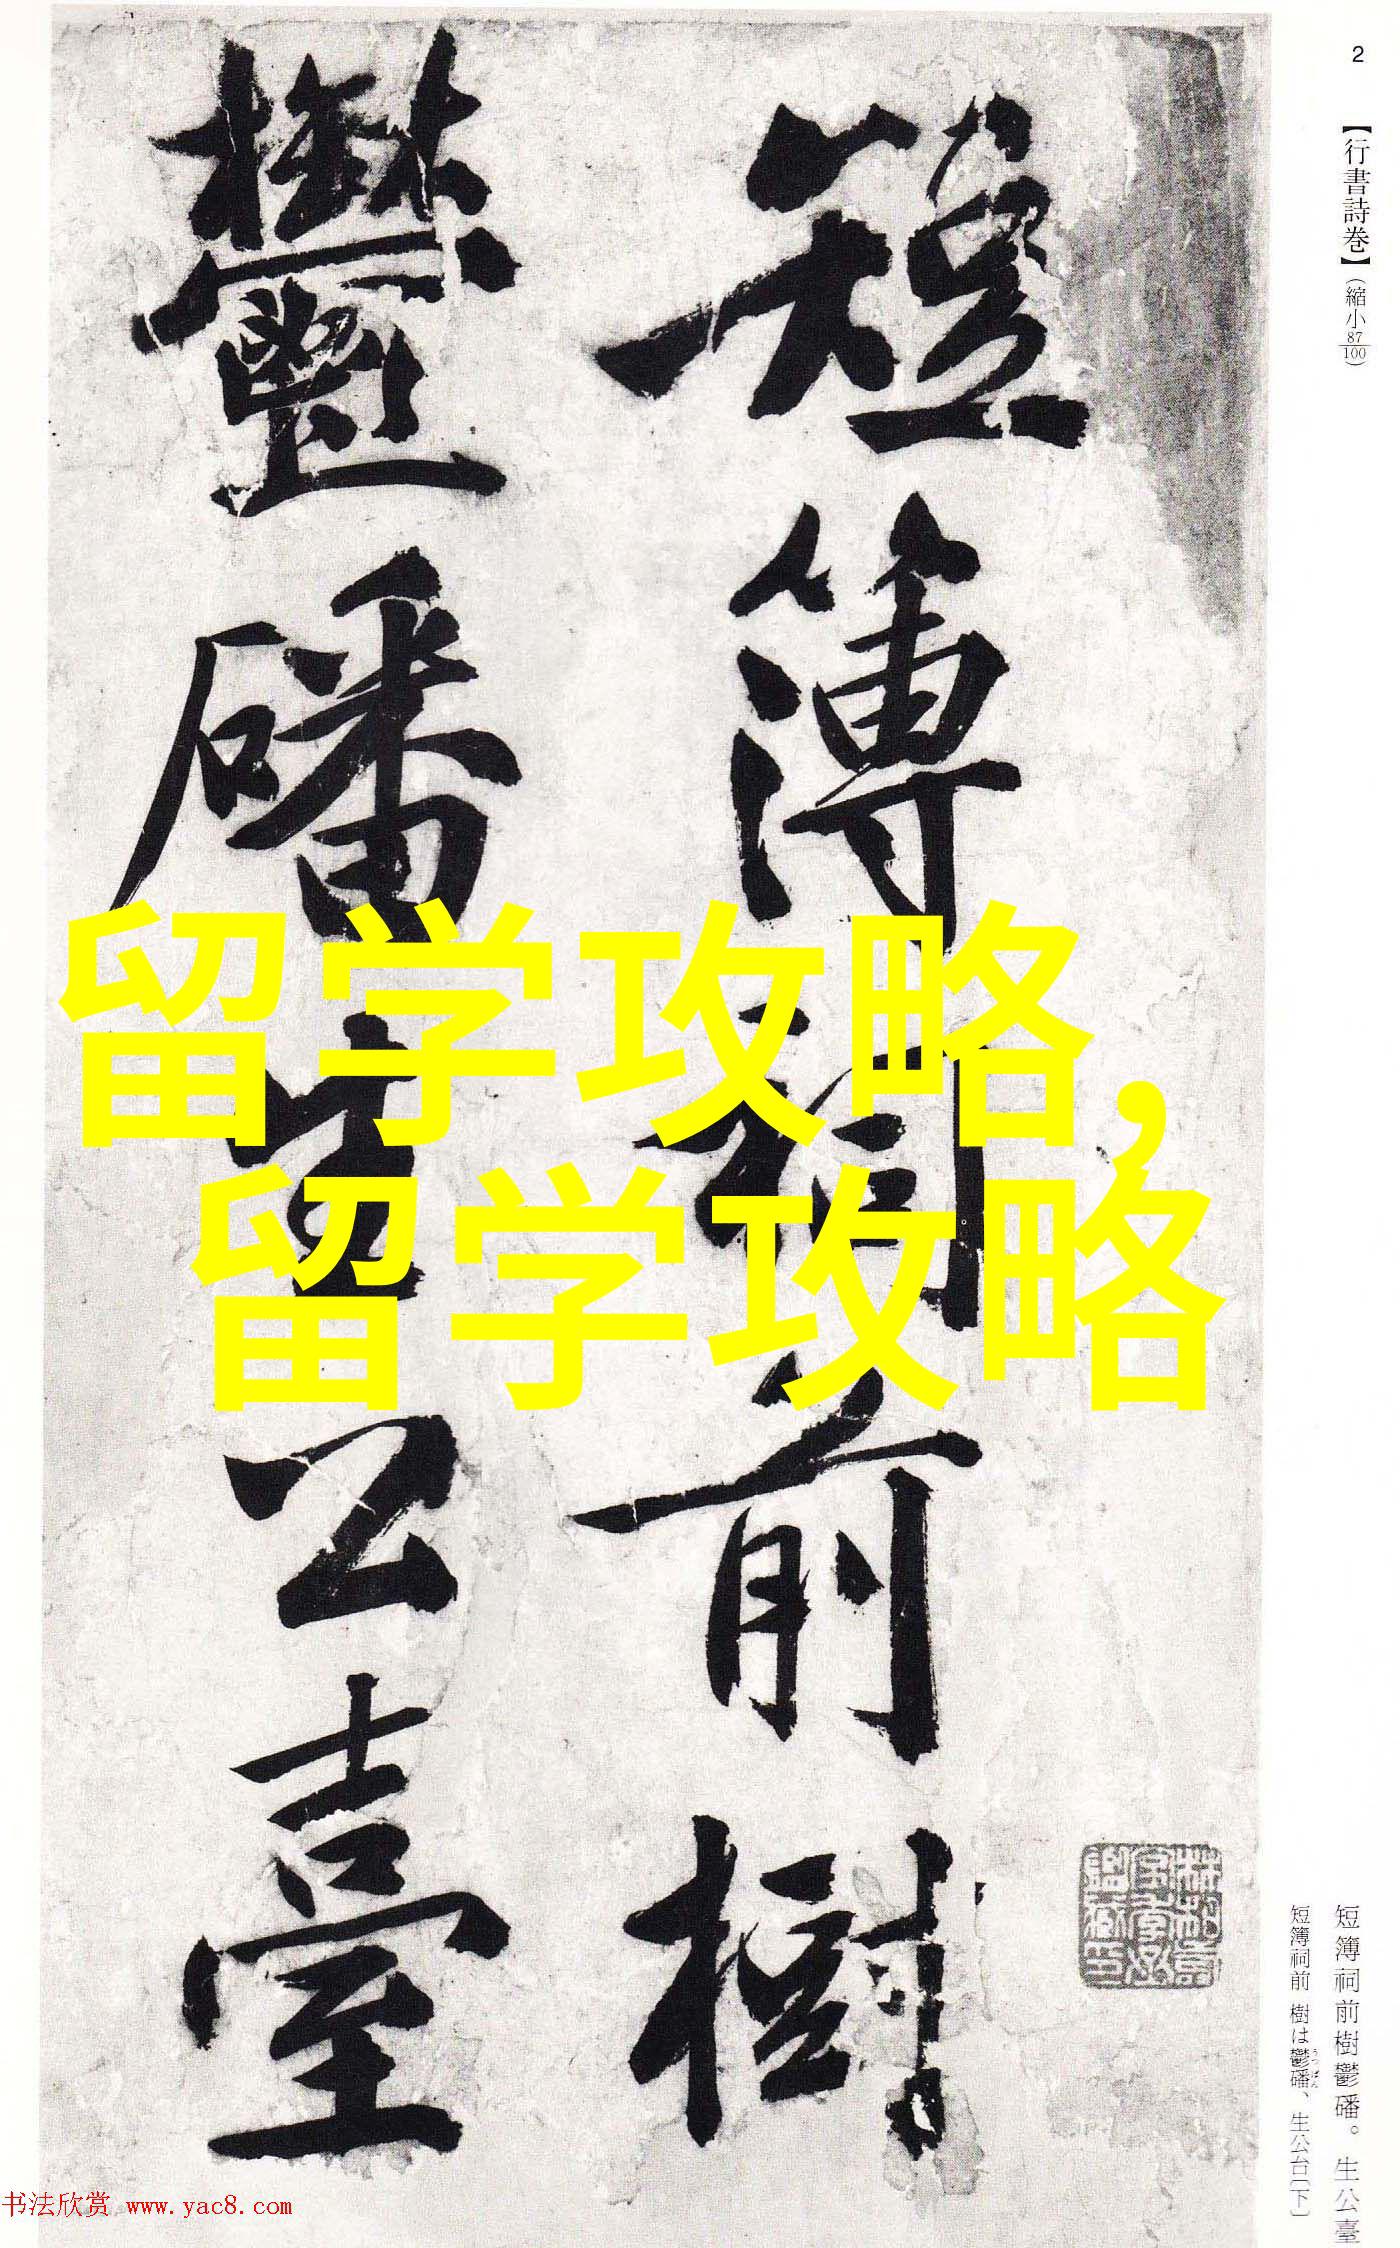 2
【行書詩巻】（縮小87/100）
短簿祠前樹
鬱磻生公臺
留学攻略,
留学攻略
短簿祠前樹鬱磻。生公臺
短簿祠前 樹は鬱磻、生公台〔下〕
うつばん
书法欣赏 www.yac8.com